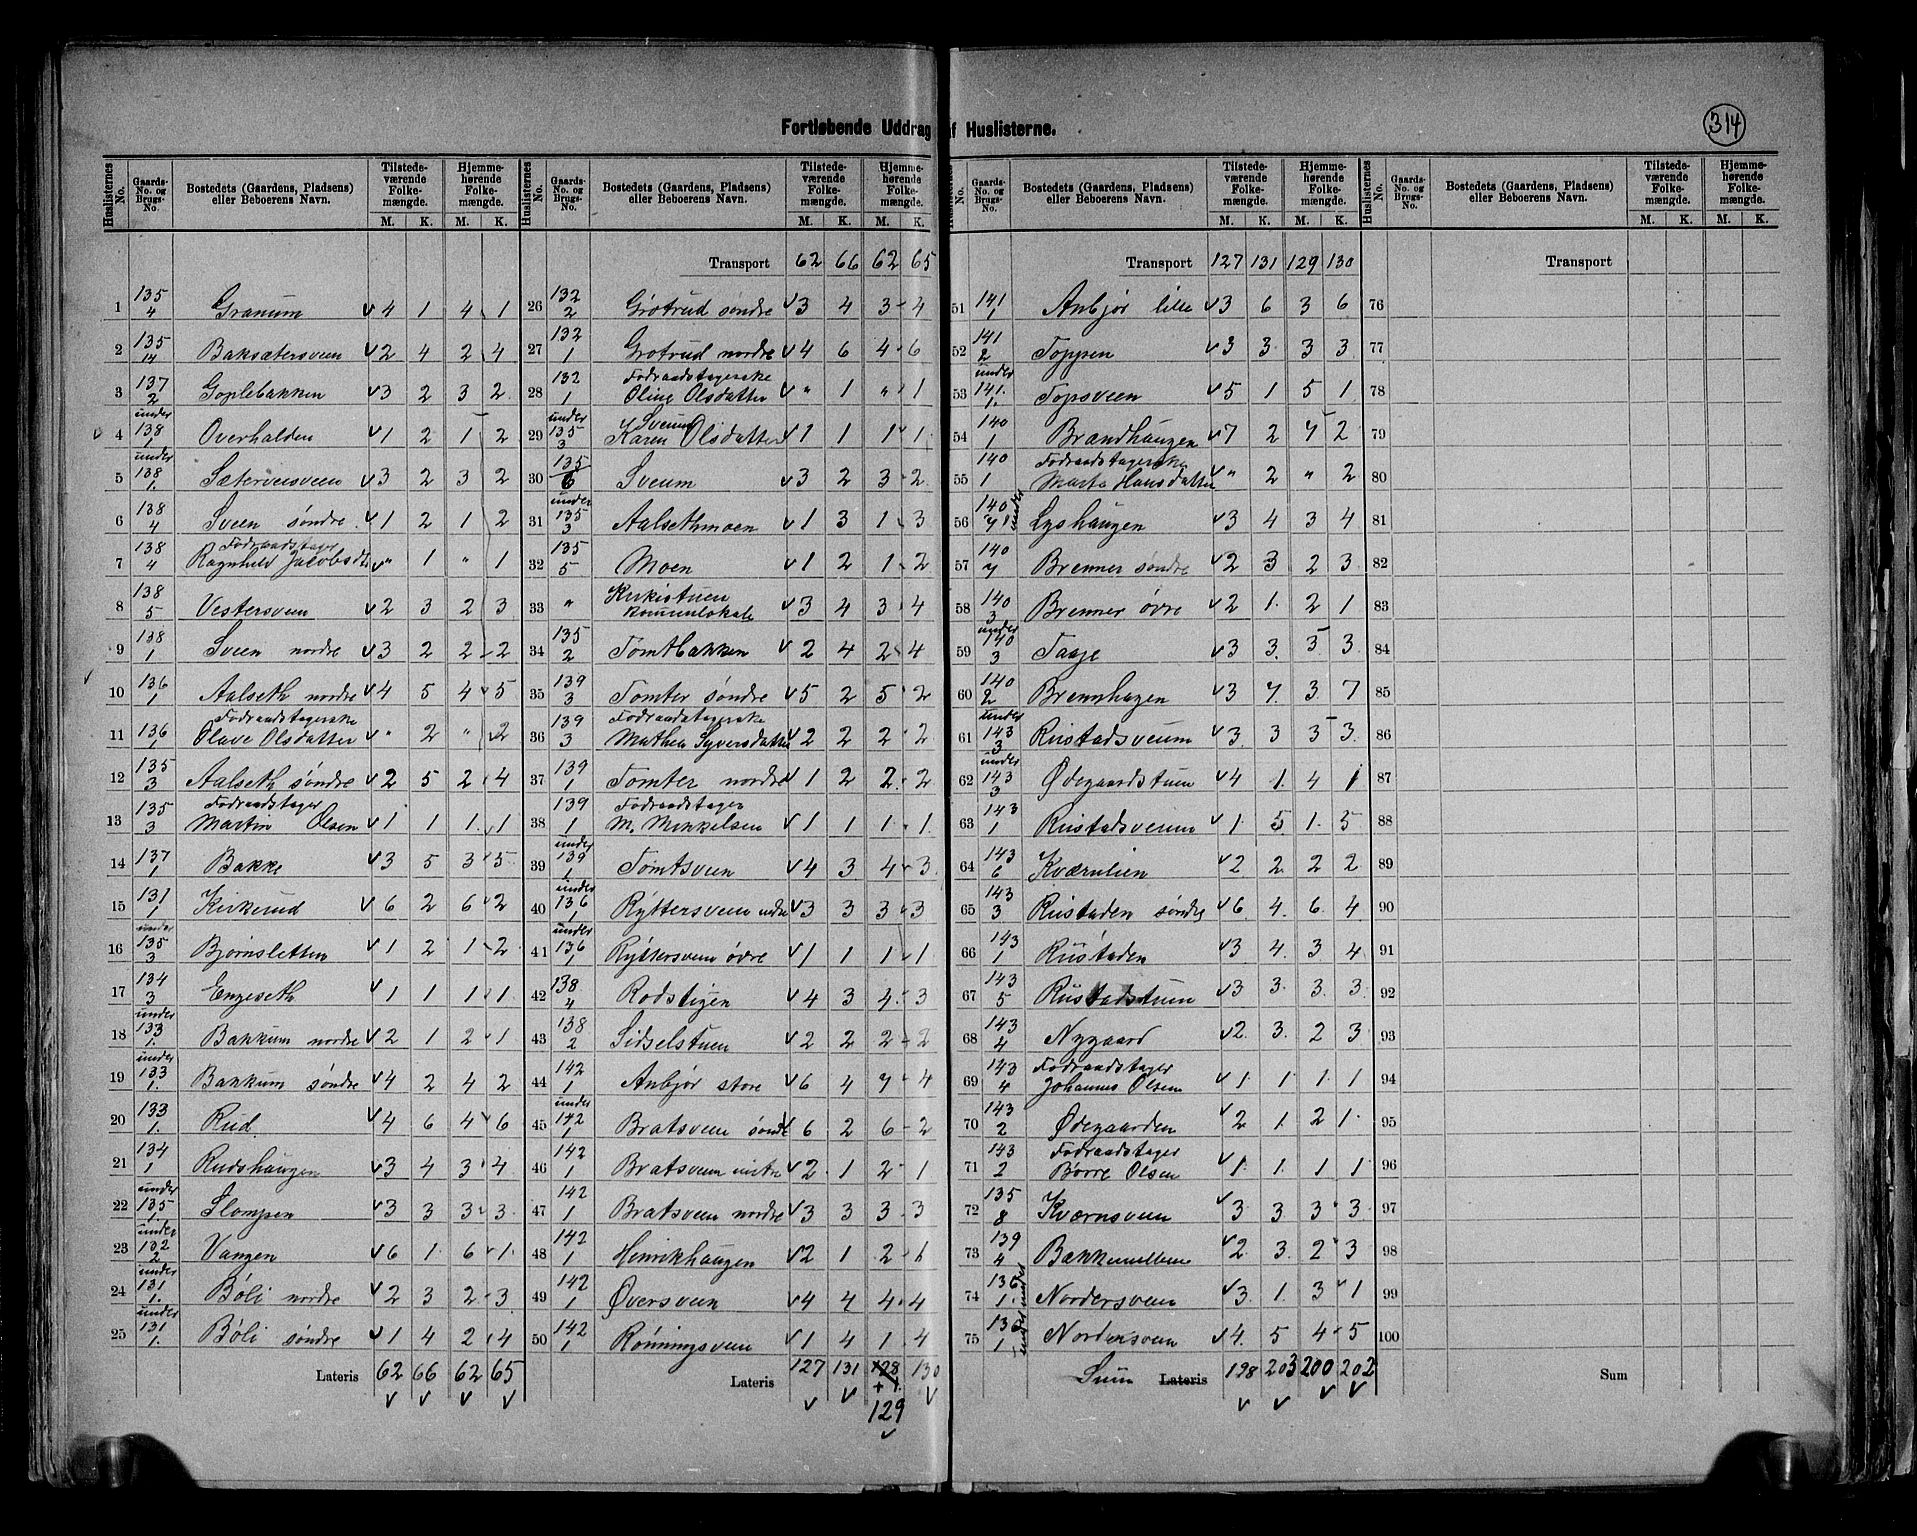 Fortløbende Uddrag af Huslisterne.
314
Huslisternes No. Gaards-No. og Brugs-No. Bostedets (Gaardens, Pladsens) eller Beboerens Navn. Tilstedeværende Folkemængde. M. K. Hjemmehørende Folkemængde. M. K.
1 135/4 Granum v 4 1 4 1
2 135/14 Baksætersveen v 2 4 2 4
3 137/2 Goplebakken v 3 2 3 2
4 under 138/1 Overhalden v 1 2 1 2
5 under 138/1 Sæterveisveen v 3 2 3 2
6 138/4 Sveen søndre v 1 2 1 2
7 138/4 Fodraadstager Ragnhild Jacobsdt v " 1 " 1
8 138/5 Vestersveen v 2 3 2 3
9 138/1 Sveen nordre v 3 2 2 2
10 136/1 Aalseth nordre v 4 5 4 5
11 136/1 Fodraadstagerske Olave Olsdatter v " 2 " 2
12 135/3 Aalseth søndre v 2 5 2 4
13 135/3 Fodraadstager Martin Olsen v 1 1 1 1
14 137/1 Bakke v 3 5 3 5
15 131/1 Kirkerud v 6 2 6 2
16 under 135/3 Bjørnsletten v 1 2 1 2
17 134/3 Engeseth v 1 1 1 1
18 under 133/1 Bakkum nordre v 2 1 2 1
19 under 133/1 Bakkum søndre v 4 2 4 2
20 133/1 Rud v 4 6 4 6
21 134/1 Rudshaugen v 3 4 3 4
22 under 135/1 Slompen v 3 3 3 3
23 under 132/2 Vangen v 6 1 6 1
24 under 131/1 Bøli nordre v 2 3 2 3
25 under 131/1 Bøli søndre v 1 4 2 4
Lateris 62 66 62 65
v v v v
Huslisternes No. Gaards-No. og Brugs-No. Bostedets (Gaardens, Pladsens) eller Beboerens Navn. Tilstedeværende Folkemængde. M. K. Hjemmehørende Folkemængde. M. K.
Transport 62 66 62 65
26 132/2 Grøtrud søndre v 3 4 3 4
27 132/1 Grotrud nordre v 4 6 4 6
28 132/1 Fodraadstagerske Oline Olsdatter v " 1 " 1
29 under 135/3 Sveum Karen Olsdatter v 1 1 1 1
30 135/6 Sveum v 3 2 3 2
31 under 135/3 Aalsethmoen v 1 3 1 3
32 135/5 Moen v 1 2 1 2
33 " Kirkestuen Kommunlokale v 3 4 3 4
34 135/2 Tomtbakken v 2 4 2 4
35 139/3 Tomter søndre v 5 2 5 2
36 139/3 Fodraadstagerske Mathea Syversdatter v 2 2 2 2
37 139/1 Tomter nordre v 1 2 2 2
38 139/1 Fodraadstager M. Mikkelsen v 1 1 1 1
39 under 139/1 Tomtsveen v 4 3 4 3
40 under 136/1 Ryttersveen nedre v 3 3 3 3
41 under 136 Ryttersveen øvre v 1 1 1 1
42 138/4 Rodstigen v 4 3 4 3
43 138/2 Sidselstuen v 2 2 2 2
44 142/1 Anbjør store v 6 4 7 4
45 under 142/1 Bratsveen søndr v 6 2 6 2
46 142/1 Bratsveen v 2 1 2 1
47 142/1 Bratsveen nordre v 3 3 3 3
48 142/1 Henrikhaugen v 2 1 2 1
49 142/1 Øversveen v 4 4 4 4
50 142/1 Rønningsveen v 1 4 1 4
Lateris 127 131 128 130
+ 1
129
v v v v
Huslisternes No. Gaards-No. og Brugs-No. Bostedets (Gaardens, Pladsens) eller Beboerens Navn. Tilstedeværende Folkemængde. M. K. Hjemmehørende Folkemængde. M. K.
Transport 127 131 129 130
51 141/1 Anbjør lille v 3 6 3 6
52 141/2 Toppen v 3 3 3 3
53 under 141/1 Topsveen v 5 1 5 1
54 140/1 Brandhaugen v 7 2 7 2
55 140/1 Fodraadstagerske Marta Hansdatter v " 2 " 2
56 140 under Lyshaugen v 3 4 3 4
57 140/7 Brenner søndre v 2 3 2 3
58 140/3 Brenner øvre v 2 1 2 1
59 under 140/3 Taaje v 3 3 3 3
60 140/2 Brennhagen v 3 7 3 7
61 under 143/3 Rustadsveum v 3 3 3 3
62 under 143/3 Ødegaardstuen v 4 1 4 1
63 143/1 Rustadsveum v 1 5 1 5
64 143/6 Kværnlien v 2 2 2 2
65 143/3 Rustaden søndre v 6 4 6 4
66 143/1 Rustaden v 3 4 3 4
67 143/5 Rustadstuen v 3 3 3 3
68 143/4 Nygaard v 2 3 2 3
69 143/4 Fodraadstager Johannes Olsen v 1 1 1 1
70 143/2 Ødegaarden v 2 1 2 1
71 143/2 Fodraadstager Borre Olsen v 1 1 1 1
72 135/8 Kværnsveen v 3 3 3 3
73 139/4 Bakkemellem v 2 3 2 3
74 136/1 under Nordersveen v 3 1 3 1
75 under Nordersveen v 4 5 4 5
Sum Lateris 198 203 200 202
v v v v
Huslisternes No. Gaards-No. og Brugs-No. Bostedets (Gaardens, Pladsens) eller Beboerens Navn. Tilstedeværende Folkemængde. M. K. Hjemmehørende Folkemængde. M. K.
Transport
76
77
78
79
80
81
82
83
84
85
86
87
88
89
90
91
92
93
94
95
96
97
98
99
100
Sum